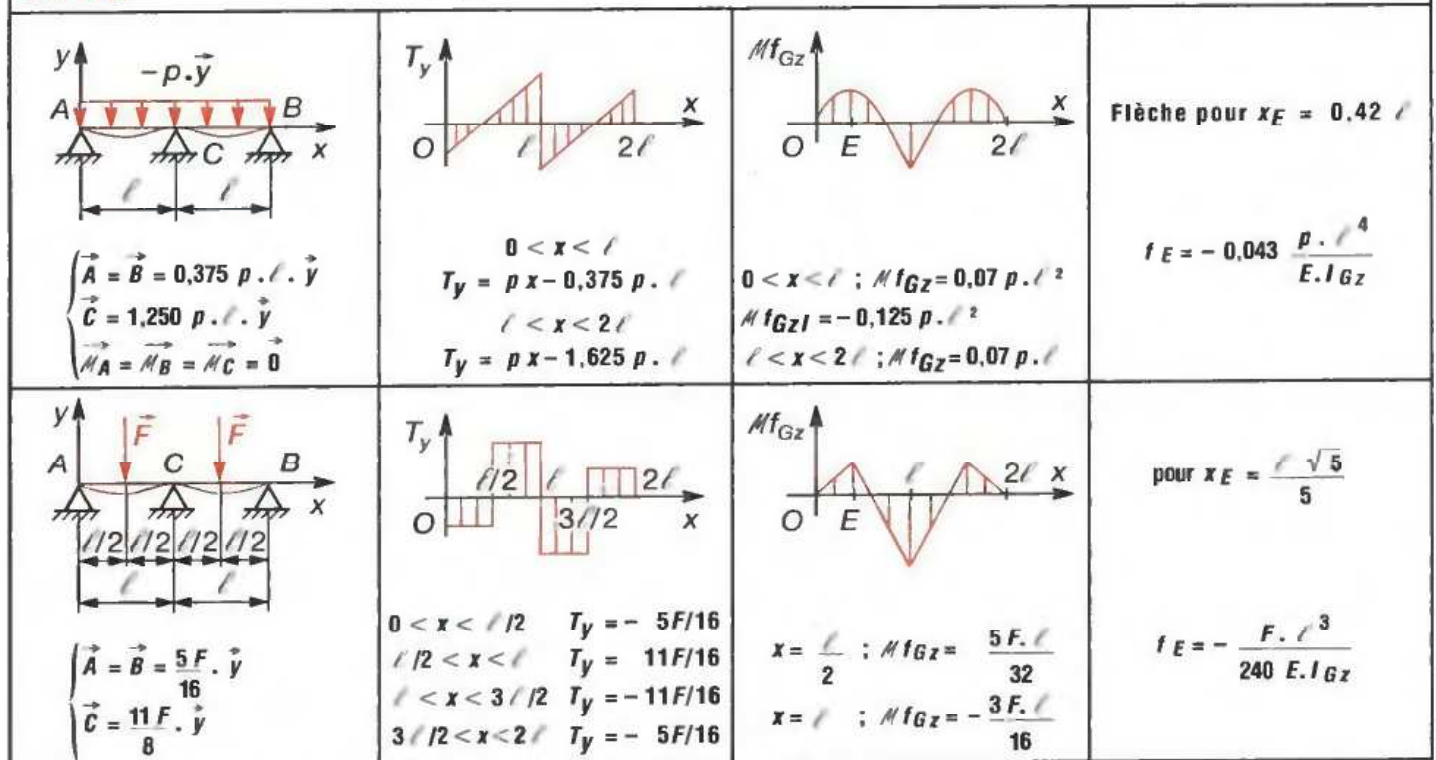 y
−p.y⃗
A
B
C
x
ℓ
ℓ
A⃗ = B⃗ = 0,375 p.ℓ.y⃗
C⃗ = 1,250 p.ℓ.y⃗
M⃗A = M⃗B = M⃗C = 0⃗
Ty
x
O
ℓ
2ℓ
0 < x < ℓ
Ty = px − 0,375 p.ℓ
ℓ < x < 2ℓ
Ty = px − 1,625 p.ℓ
MfGz
x
O
E
2ℓ
0 < x < ℓ ; MfGz = 0,07 p.ℓ²
MfGzl = − 0,125 p.ℓ²
ℓ < x < 2ℓ ; MfGz = 0,07 p.ℓ
Flèche pour xE = 0.42 ℓ
fE = − 0,043 p.ℓ⁴ / E.IGz
y
F⃗
F⃗
A
C
B
x
ℓ/2 ℓ/2 ℓ/2 ℓ/2
ℓ
ℓ
A⃗ = B⃗ = 5F/16 . y⃗
C⃗ = 11F/8 . y⃗
Ty
ℓ/2
ℓ
2ℓ
O
3ℓ/2
x
0 < x < ℓ/2 Ty = − 5F/16
ℓ/2 < x < ℓ Ty = 11F/16
ℓ < x < 3ℓ/2 Ty = − 11F/16
3ℓ/2 < x < 2ℓ Ty = − 5F/16
MfGz
ℓ
2ℓ
x
O
E
x = ℓ/2 ; MfGz = 5F.ℓ/32
x = ℓ ; MfGz = − 3F.ℓ/16
pour xE = ℓ√5/5
fE = − F.ℓ³ / 240 E.IGz